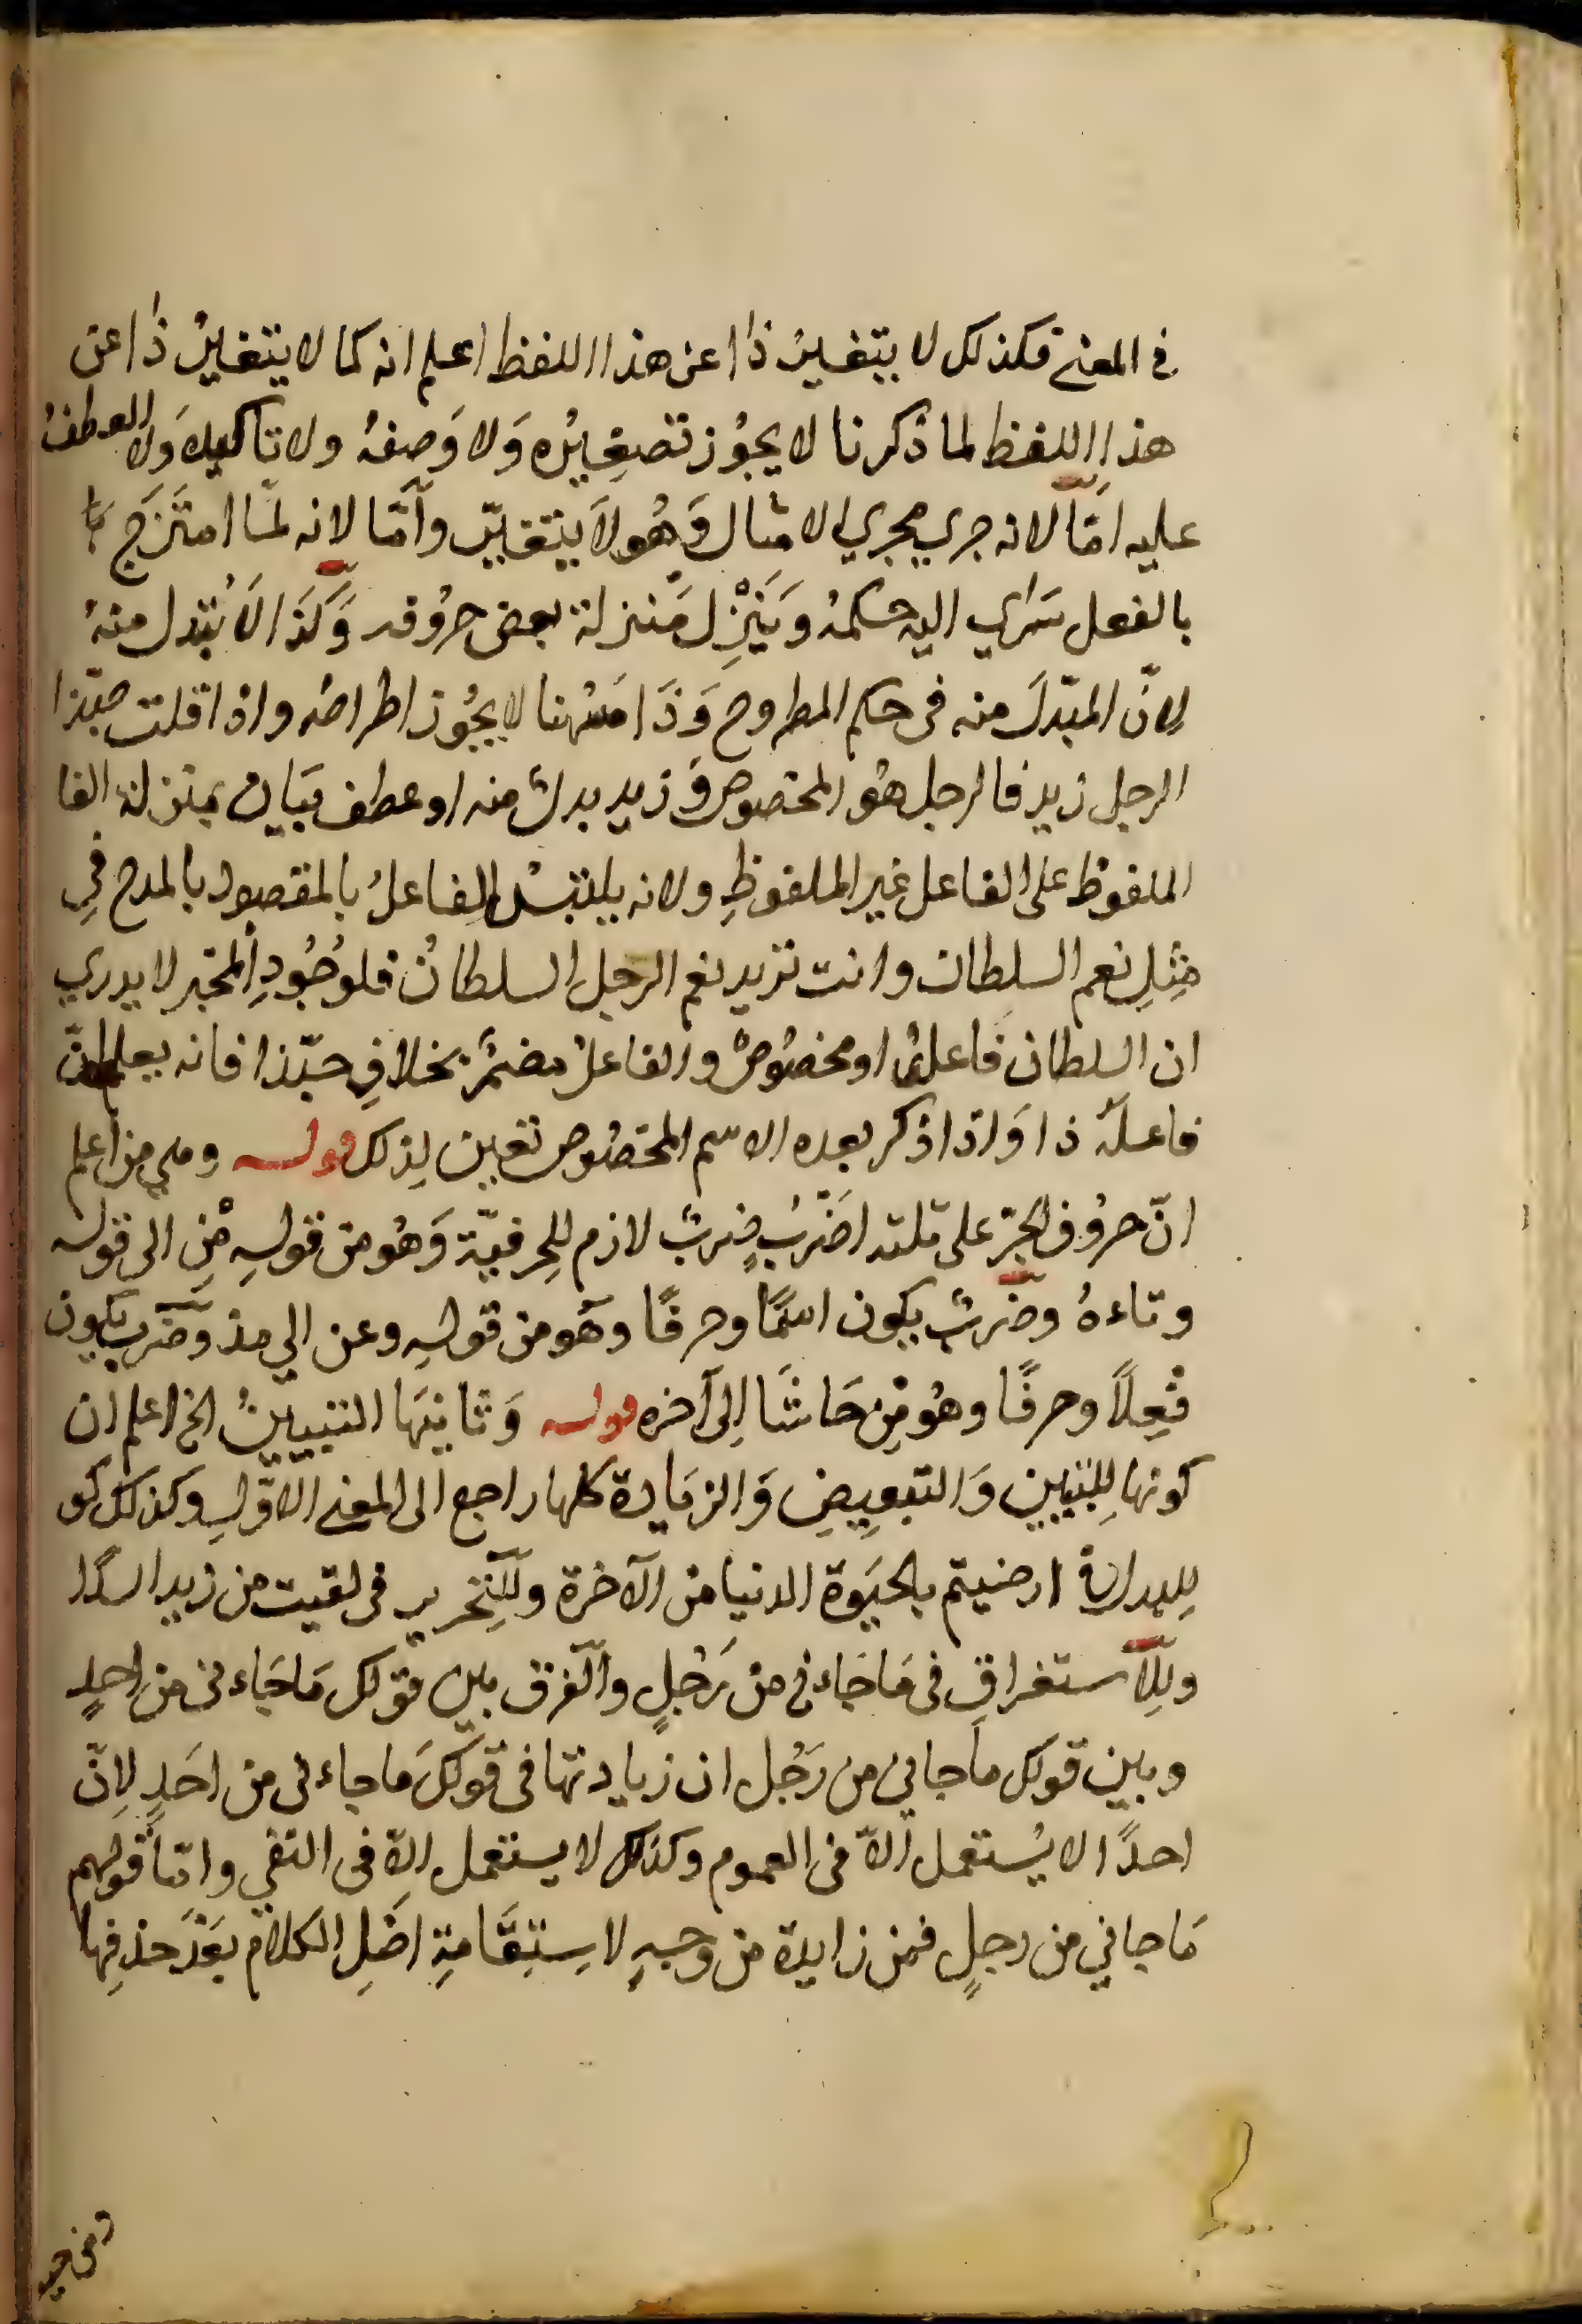 في المعنى فكذلك لا يتغير ذا عن هذا اللفظ اعلم انه كما لا يتغير ذا عن
هذا اللفظ لما ذكرنا لا يجوز تصغيره ولا وصفه ولا تاكيده ولا العطف
عليه امّا لانه جرى مجرى الامثال وهو لا يتغيّر وأمّا لانه لمّا امتزج
بالفعل سرى اليه حكمه وينزل منزلة بعض حروفه وكذا لا يبدل منه
لانّ المبدل منه في حكم المطروح وذا ههنا لا يجوز اطراحه واذا قلت حبّذا
الرجل زيد فالرجل هو المخصوص وزيد بدل منه او عطف بيان بمنزلة الفا
الملفوظ على الفاعل غير الملفوظِ ولانه يلتبس الفاعلُ بالمقصود بالمدح في
مثلِ نعم السلطان وانت تريد نعم الرجل السلطانُ فلوجُودِ المخبر لا يدري
ان السلطان فاعلٌ او مخصُوصٌ والفاعلُ مضمرٌ بخلافِ حبّذا فانه يعلم انّ
فاعله ذا واذا ذكر بعده الاسم المخصُوص تعين لِذلك قوله وهي من اعلم
انّ حرُوف الجرّ على ثلثه اضرُبٍ ضربٌ لازم للحرفيّة وَهُو من قولهِ مِن الى قوله
وتاءهُ وضربٌ يكون اسمًا وحرفًا وهو من قولهِ وعن الى مذ وضرب يكون
فِعلاً وحرفًا وهُو مِن حَاشَا اِلى آخره قوله وَثانيهَا التبيينُ الخ اعلم ان
كونها لِلتبيين وَالتبعِيضِ وَالزيَادة كلها راجع الى المعنى الاوّلِ وكذلك كو
للبدل في ارضيتم بالحيَوة الدنيا من الآخرة وللتجريد في لقيت من زيد اسدًا
وللاستغراقِ في مَا جَاءني من رَجُلٍ والفرق بين قولك مَا جَاءني من احدٍ
وبين قولك ما جاني من رَجُل ان زيادتها في قولكَ مَا جاءني من احَدٍ لاِنّ
احدًا لا يُستعمل الاّ في العموم وكذلك لا يستعمل الاّ في النفي وامّا قولهم
مَا جاني من رجلٍ فمن زايدة من وجهٍ لاِستِقَامَةِ اصْلِ الكلام بَعْدَ حذفِها